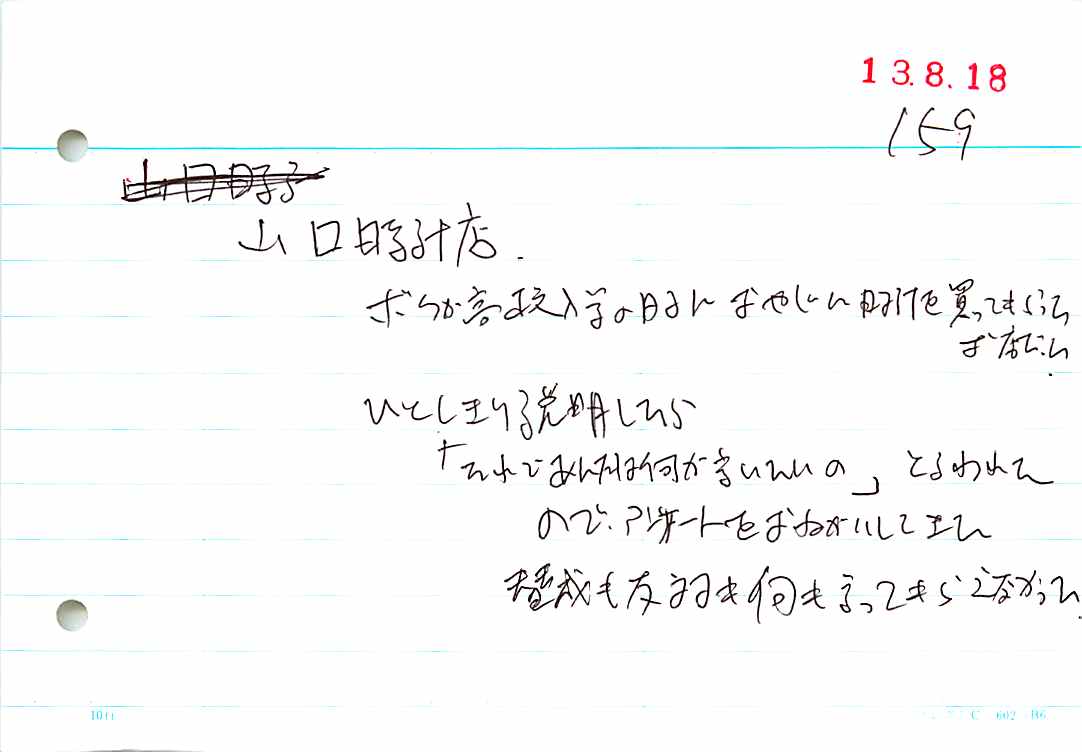 13.8.18
159
山口時
山口時計店.
ボクが高校入学の時におやじに時計を買ってもらった
お店だった.
ひとしきり説明したら
「それであんたは何が言いたいの」と言われた
ので、アンケートをおねがいしてきた
賛成も反対も何も言ってもらえなかった.
1011
C 602 B6